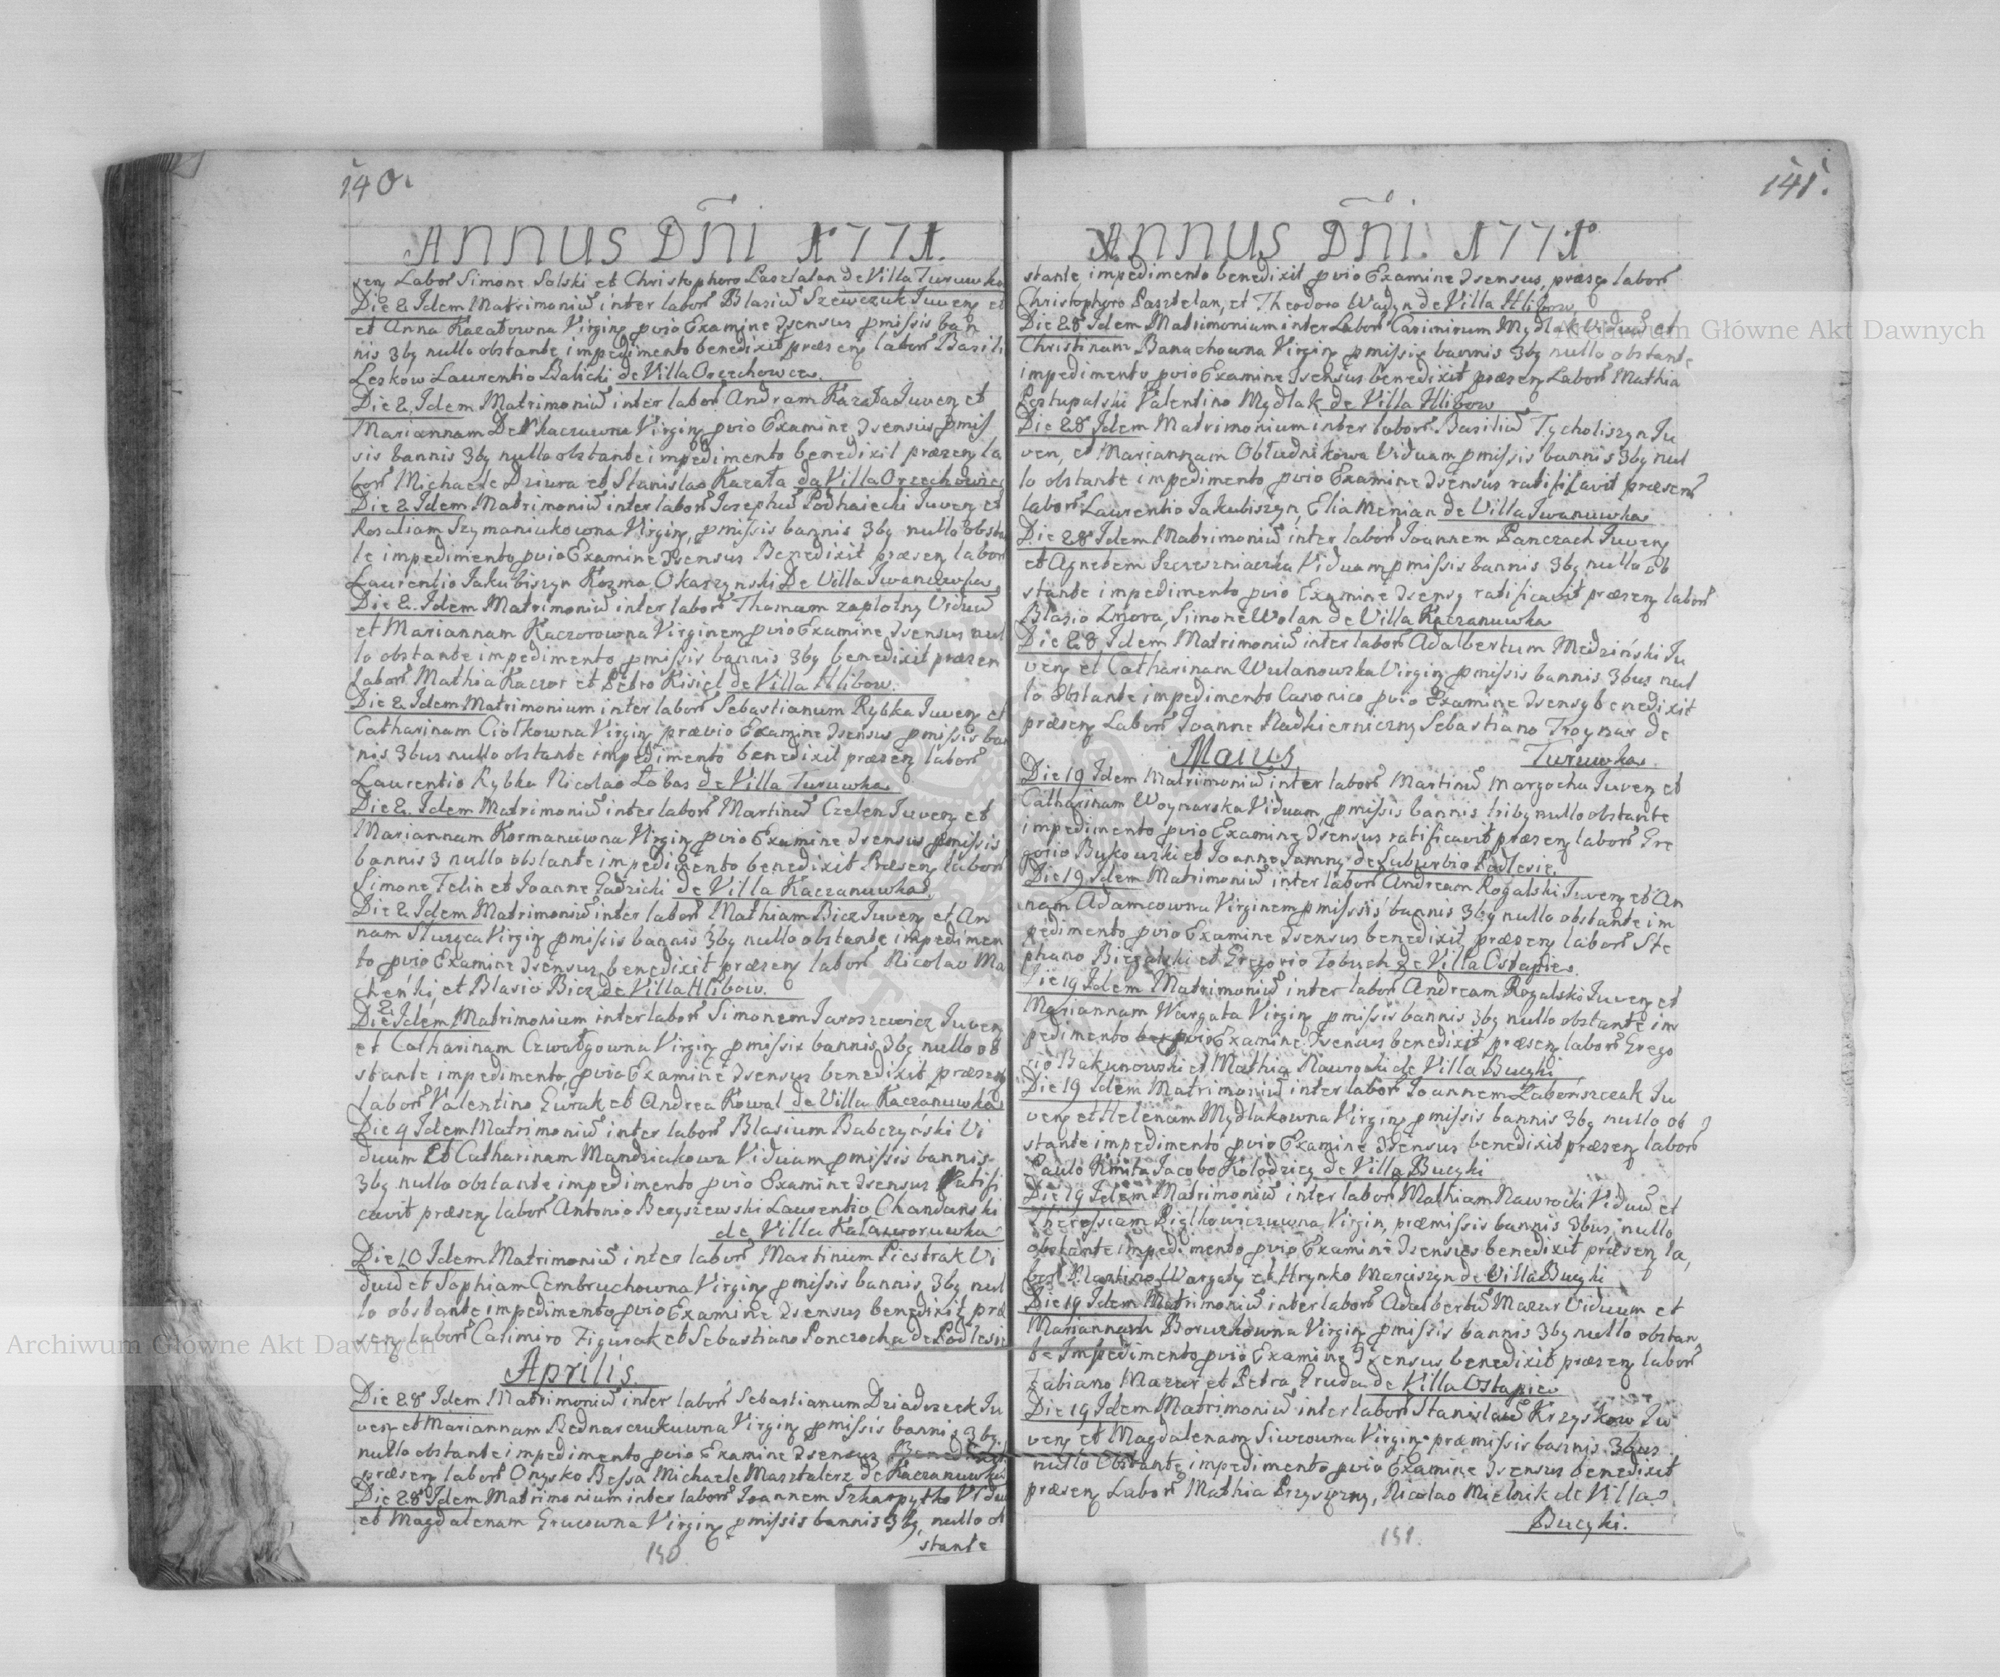 140.
ANNUS Dñi 1771.
sen labor Simone Solski et Christophoro Pasztalan de Villa Turuwka
Die 2 Idem Matrimoniũ inter labor Blasiũ Szewczuk Iuven et
et Anna Kazatowna Virgin pvio Examine dsensus pmissis ban
nis 3bq nullo obstante impedimento benedixit præsen labor Basili
Leskow Laurentio Balicki de Villa Orzechowce.
Die 2. Idem Matrimoniũ inter labor Andram Kazata Iuven et
Mariannam Virgin pvio Examine dsensus pmis
sis bannis 3bq nullo obstante impedimento benedixit præsen la
bor Michaele Dziura et Stanislao Kazata de Villa Orzechowiec
Die 2 Idem Matrimoniũ inter labor Iosephũ Podhaiecki Iuven et
Rosaliam Szymaniukowna Virgin, pmissis bannis 3bq nullo obsta
te impedimento pvio Examine dsensus Benedixit præsen labor
Laurentio Iakubiszyn Kozma Okarzynski De Villa Iwanuwka
Die 2. Idem Matrimoniũ inter labor Thomam zaplotny Viduũ
et Mariannam Kaczorowna Virginem pvio Examine dsensus nul
lo obstante impedimento pmissis bannis 3bq benedixit præsen
labor Mathia Kaczor et Petro Kisiel de Villa Hlibow.
Die 2 Idem Matrimonium inter labor Sebastianum Rybka Iuven et
Catharinam Ciołkowna Virgin prævio Examine dsensus pmissis ban
nis 3bus nullo obstante impedimento benedixit præsen labor
Laurentio Rybka Nicolao Łabas de Villa Turuwka
Die 2. Idem Matrimoniũ inter labor Martinũ Czelen Iuven et
Mariannam Kormanuwna Virgin pvio Examine dsensus pmissis
bannis 3 nullo obstante impedimento benedixit Præsen labor
Simone Felin et Ioanne Gadzicki de Villa Kaczanuwka
Die 2 Idem Matrimoniũ inter labor Mathiam Bicz Iuven et An
nam Sturyca Virgin pmissis bannis 3bq nullo obstante impedimen
to pvio Examine dsensus benedixit præsen labor Nicolao Ma
chenki, et Blasio Bicz de Villa Hlibow.
Die 2 Idem Matrimonium inter labor Simonem Iaroszewicz Iuven
et Catharinam Czwałgowna Virgin pmissix bannis 3bq nullo ob
stante impedimento, pvio Examine dsensus benedixit præsen
labor Valentino Gurak et Andrea Kowal de Villa Kaczanuwka
Die 4 Idem Matrimoniũ inter labor Blasium Babczyński Vi
duum Et Catharinam Mandziakowa Viduam pmissis bannis
3bq nullo obstante impedimento pvio Examine dsensus Ratifi
cavit præsen labor Antonio Beryszewski Laurentio Chandanski
de Villa Kaławoruwka
Die 10 Idem Matrimoniũ inter labor Martinum Piestrak Vi
duũ et Sophiam Cembruchowna Virgin pmissis bannis 3bq nul
lo obstante impedimento pvio Examine dsensus benedixit præ
sen labor Casimiro Figurak et Sebastiano Panczocha de Podlesie
Aprilis.
Die 28 Idem Matrimoniũ inter labor Sebastianum Dziadczeck Iu
ven et Mariannam Bednarczukuwna Virgin pmissis bannis 3bq
nullo obstante impedimento pvio Examine dsensus Benedixit
præsen labor Onysko Bessa Michaele Masztalerz de Kaczanuwka
Die 28 Idem Matrimonium inter labor Ioannem Szkarpytko Viduũ
et Magdalenam Grucowna Virgin pmissis bannis 3bq, nullo ob
stante
150
141.
ANNUS Dñi. 1771
stante, impedimento benedixit pvio Examine dsensus, præsen labor
Christophoro Pasztelan, et Theodoro Wadyn de Villa Hlibow
Die 28 Idem Matrimonium inter Labor Casimirum Mydlak Viduũ et
Christinam Banachowna Virgin pmissis bannis 3bq nullo obstante
impedimento pvio Examine dsensus benedixit præsen Labor Mathia
Postupalski Valentino Mydlak de Villa Hlibow
Die 28 Idem Matrimonium inter labor Basiliũ Tycholiszyn Iu
ven, et Mariannam Obłudnikowa Viduam pmissis bannis 3bq nul
lo obstante impedimento, pvio Examine dsensus ratificavit præsen
labor Laurentio Iakubiszyn, Elia Menian de Villa Iwanuwka
Die 28 Idem Matrimoniũ inter labor Ioannem Panczach Iuven
et Agnetem Szereszniaczka Viduam pmissis bannis 3bq nullo ob
stante impedimento pvio Examine dsensq ratificavit præsen labor
Blasio Znora, Simone Wolan de Villa Kaczanuwka
Die 28 Idem Matrimoniũ inter labor Adalbertum Medziński Iu
ven et Catharinam Wulanowzka Virgin pmissis bannis 3bus nul
lo Obstante impedimento Canonico pvio Examine dsensq benedixit
præsen Labor Ioanne Nadkierniczny Sebastiano Troynar de
Maius. Turuwka
Die 19 Idem Matrimoniũ inter labor Martinũ Margocha Iuven et
Catharinam Woynarska Viduam, pmissis bannis tribq nullo obstante
impedimento pvio Examine dsensus ratificavit præsen labor Gre
gorio Bukowski et Ioanne Iamny de Suburbio Podlesie.
Die 19 Idem Matrimoniũ inter labor Andream Rogalski Iuven et An
nam Adamcowna Virginem pmissis bannis 3bq nullo obstante im
pedimento pvio Examine dsensus benedixit præsen labor Ste
phano Biegalski et Gregorio Tobuch de Villa Ostapie.
Die 19 Idem Matrimoniũ inter labor Andream Rogalski Iuven et
Mariannam Wargata Virgin pmissis bannis 3bq nullo obstante im
pedimento pvio Examine dsensus benedixit præsen labor Grego
rio Bakunowski et Mathia Nawrocki de Villa Bucyki
Die 19 Idem Matrimoniũ inter labor Ioannem Łabenszczak Iu
ven et Helenam Mydlakowna Virgin pmissis bannis 3bq nullo ob
stante impedimento pvio Examine dsensus benedixit præsen labor
Paulo Kmita Iacobo Kołodziey de Villa Bucyki
Die 19 Idem Matrimoniũ inter labor Mathiam Nawrocki Viduũ et
Theressiam Pielkowiczuwna Virgin, præmissis bannis 3bus nullo
obstante impedimento pvio Examine dsensus benedixit præsen la,
bor Martino Wargaty et Hrynko Marciszyn de Villa Bucyki
Die 19 Idem Matrimoniũ inter labor Adalbertũ Mazur Viduum et
Mariannam Boruchowna Virgin pmissis bannis 3bq nullo obstan,
te Impedimento pvio Examine dsensus benedixit præsen labor
Fabiano Mazur et Petra Gruda de Villa Ostapie
Die 19 Idem Matrimoniũ inter labor Stanislaũ Krzyskow Iu
ven et Magdalenam Siwcowna Virgin præmissis bannis 3bus
nullo Obstante impedimento pvio Examine dsensus benedixit
præsen Labor Mathia Przysiezny, Nicolao Mielnik de Villa
Bucyki.
151.
Archiwum Główne Akt Dawnych
Archiwum Główne Akt Dawnych